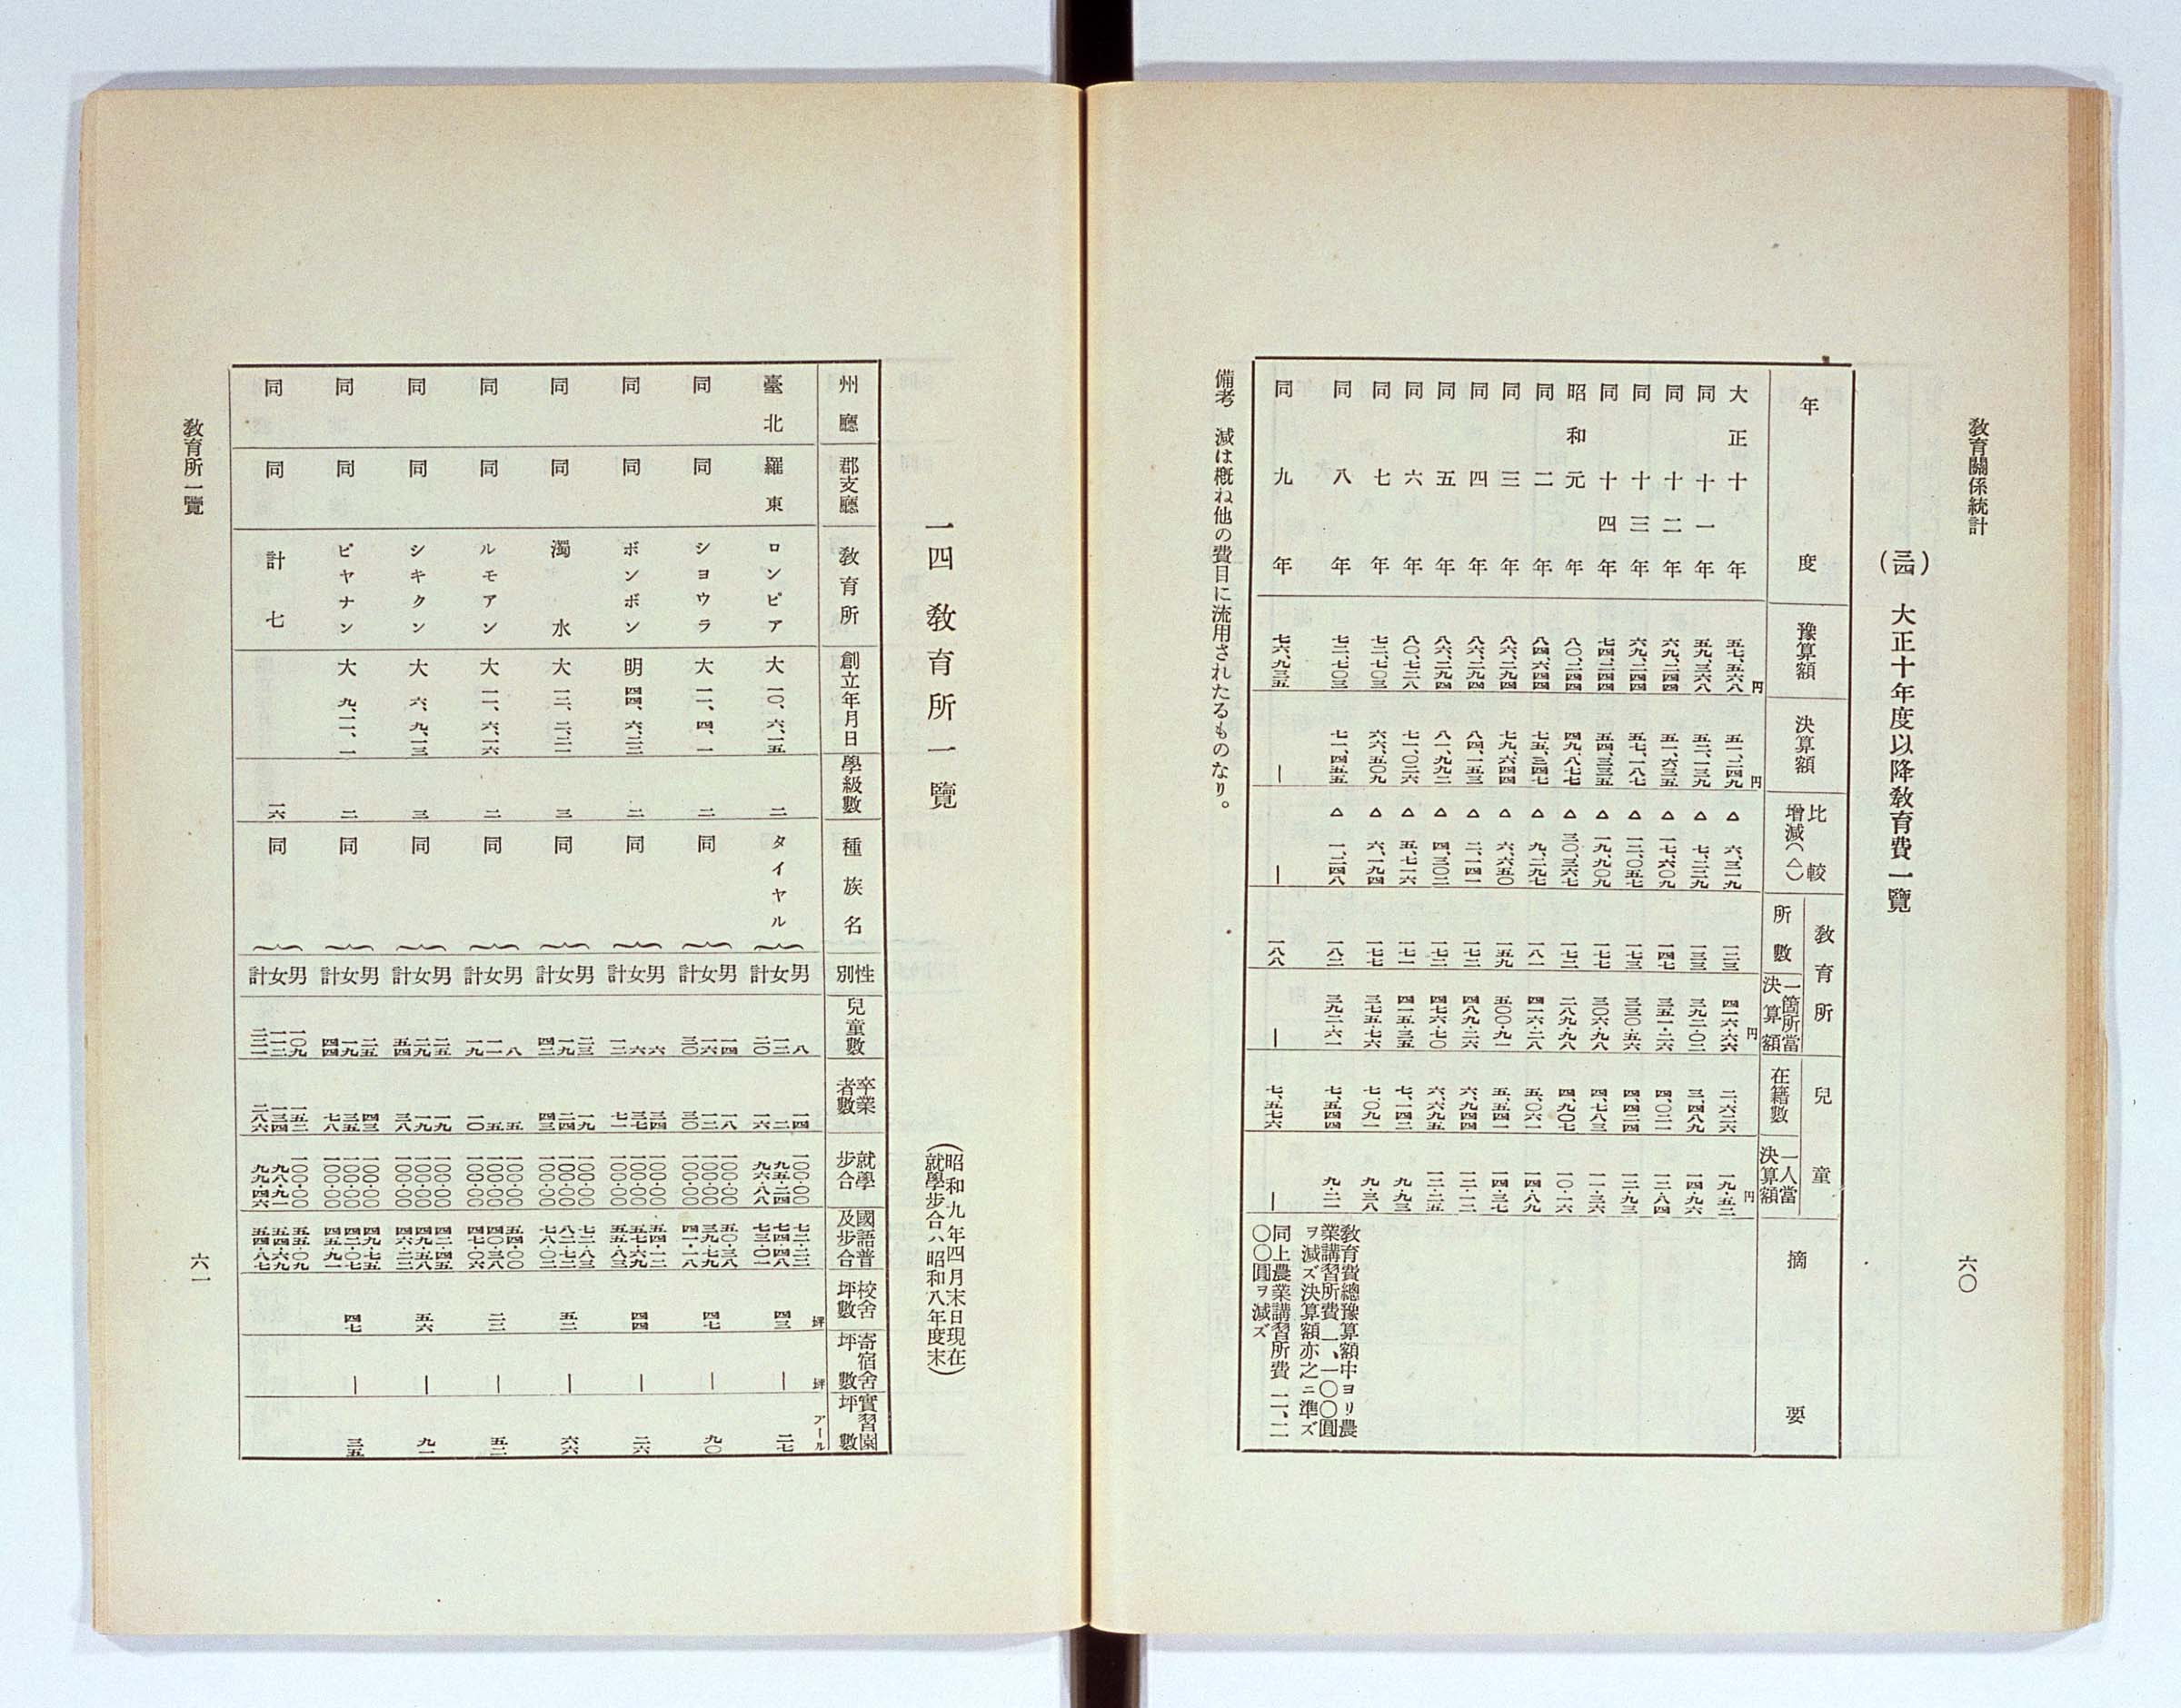 教育關係統計
(三四) 大正十年度以降教育費一覽
年度 豫算額 決算額 比較增減(△) 教育所 所數 一箇所當決算額 兒童 在籍數 一人當決算額 摘要
大正十年 五七、五六八円 五一、二四九円 △六、三一九 一二三 四一六・六六円 二、六二六 一九・五二円
同十一年 五九、三六八 五二、一三九 △七、二二九 一三三 三九二・〇二 三、四八九 一四・九六
同十二年 六九、二四四 五一、六三五 △一七、六〇九 一四七 三五一・二六 四、〇二一 一二・八四
同十三年 六九、二四四 五七、一八七 △一二、〇五七 一七三 三三〇・五六 四、四二四 一二・九三
同十四年 七四、二四四 五四、三三五 △一九、九〇九 一七七 三〇六・九八 四、七八三 一一・三六
昭和元年 八〇、二四四 四九、八七七 △三〇、三六七 一七二 二八九・九八 四、九〇七 一〇・一六
同二年 八四、六四四 七五、三四七 △九、二九七 一八一 四一六・二八 五、〇六一 一四・八九
同三年 八六、二九四 七九、六四四 △六、六五〇 一五九 五〇〇・九一 五、五四一 一四・三七
同四年 八六、二九四 八四、一五三 △二、一四一 一七二 四八九・二六 六、九四四 一二・一二
同五年 八六、二九四 八一、九九二 △四、三〇二 一七二 四七六・七〇 六、六九五 一二・二五
同六年 八〇、七二八 七一、〇二六 △五、七一六 一七一 四一五・三五 七、一四二 九・九三
同七年 七二、七〇三 六六、五〇九 △六、一九四 一七七 三七五・七六 七、〇九一 九・三八
同八年 七二、七〇三 七一、四五五 △一、二四八 一八二 三九二・六一 七、五四四 九・二一 教育費總豫算額中ヨリ農業講習所費一、一〇〇圓ヲ減ズ決算額亦之ニ準ズ
同九年 七六、九三五 — — 一八八 — 七、五七六 — 同上農業講習所費二、二〇〇圓ヲ減ズ
備考 減は概ね他の費目に流用されたるものなり。
六〇
一四 教育所一覽
(昭和九年四月末日現在
就學步合ハ昭和八年度末)
州廳 郡支廳 教育所 創立年月日 學級數 種族名 性別 兒童數 卒業者數 就學步合 國語普及步合 校舍坪數 寄宿舍坪數 實習園坪數
臺北 羅東 ロンピア 大一〇、六、一五 二 タイヤル 男女計 八 一二 二〇 一四 二 一六 一〇〇・〇〇 九五・二四 九六・八八 七二・二二 七四・四八 七三・〇一 四三坪 —坪 二七アール
同 同 シヨウラ 大一一、四、一 二 同 男女計 一四 一六 三〇 一八 一二 三〇 一〇〇・〇〇 一〇〇・〇〇 一〇〇・〇〇 五〇・三八 三九・七九 四一・一八 四七 — 九〇
同 同 ボンボン 明四四、六、二三 二 同 男女計 六 六 一二 三四 三七 七一 一〇〇・〇〇 一〇〇・〇〇 一〇〇・〇〇 五四・一二 五七・六九 五五・八三 四四 — 二六
同 同 濁水 大一三、二、二一 三 同 男女計 二三 一九 四二 一九 二四 四三 一〇〇・〇〇 一〇〇・〇〇 一〇〇・〇〇 七二・八三 八二・七二 七八・〇二 五二 — 六六
同 同 ルモアン 大一一、六、一六 二 同 男女計 八 一一 一九 五 五 一〇 一〇〇・〇〇 一〇〇・〇〇 一〇〇・〇〇 五四・〇〇 四〇・三八 四七・〇六 二二 — 五二
同 同 シキクン 大六、九、一三 三 同 男女計 二五 二九 五四 一九 一九 三八 一〇〇・〇〇 一〇〇・〇〇 一〇〇・〇〇 四二・四五 四九・五八 四六・二二 五六 — 九一
同 同 ピヤナン 大九、一二、一 二 同 男女計 二五 一九 四四 四三 三五 七八 一〇〇・〇〇 一〇〇・〇〇 一〇〇・〇〇 四九・七五 四二・〇七 四五・九一 四七 — 三五
同 同 計七 一六 同 男女計 一〇九 一一二 二二一 一五二 一三四 二八六 一〇〇・〇〇 九八・九一 九九・四六 五五・〇九 五四・六九 五四・八七
教育所一覽
六一